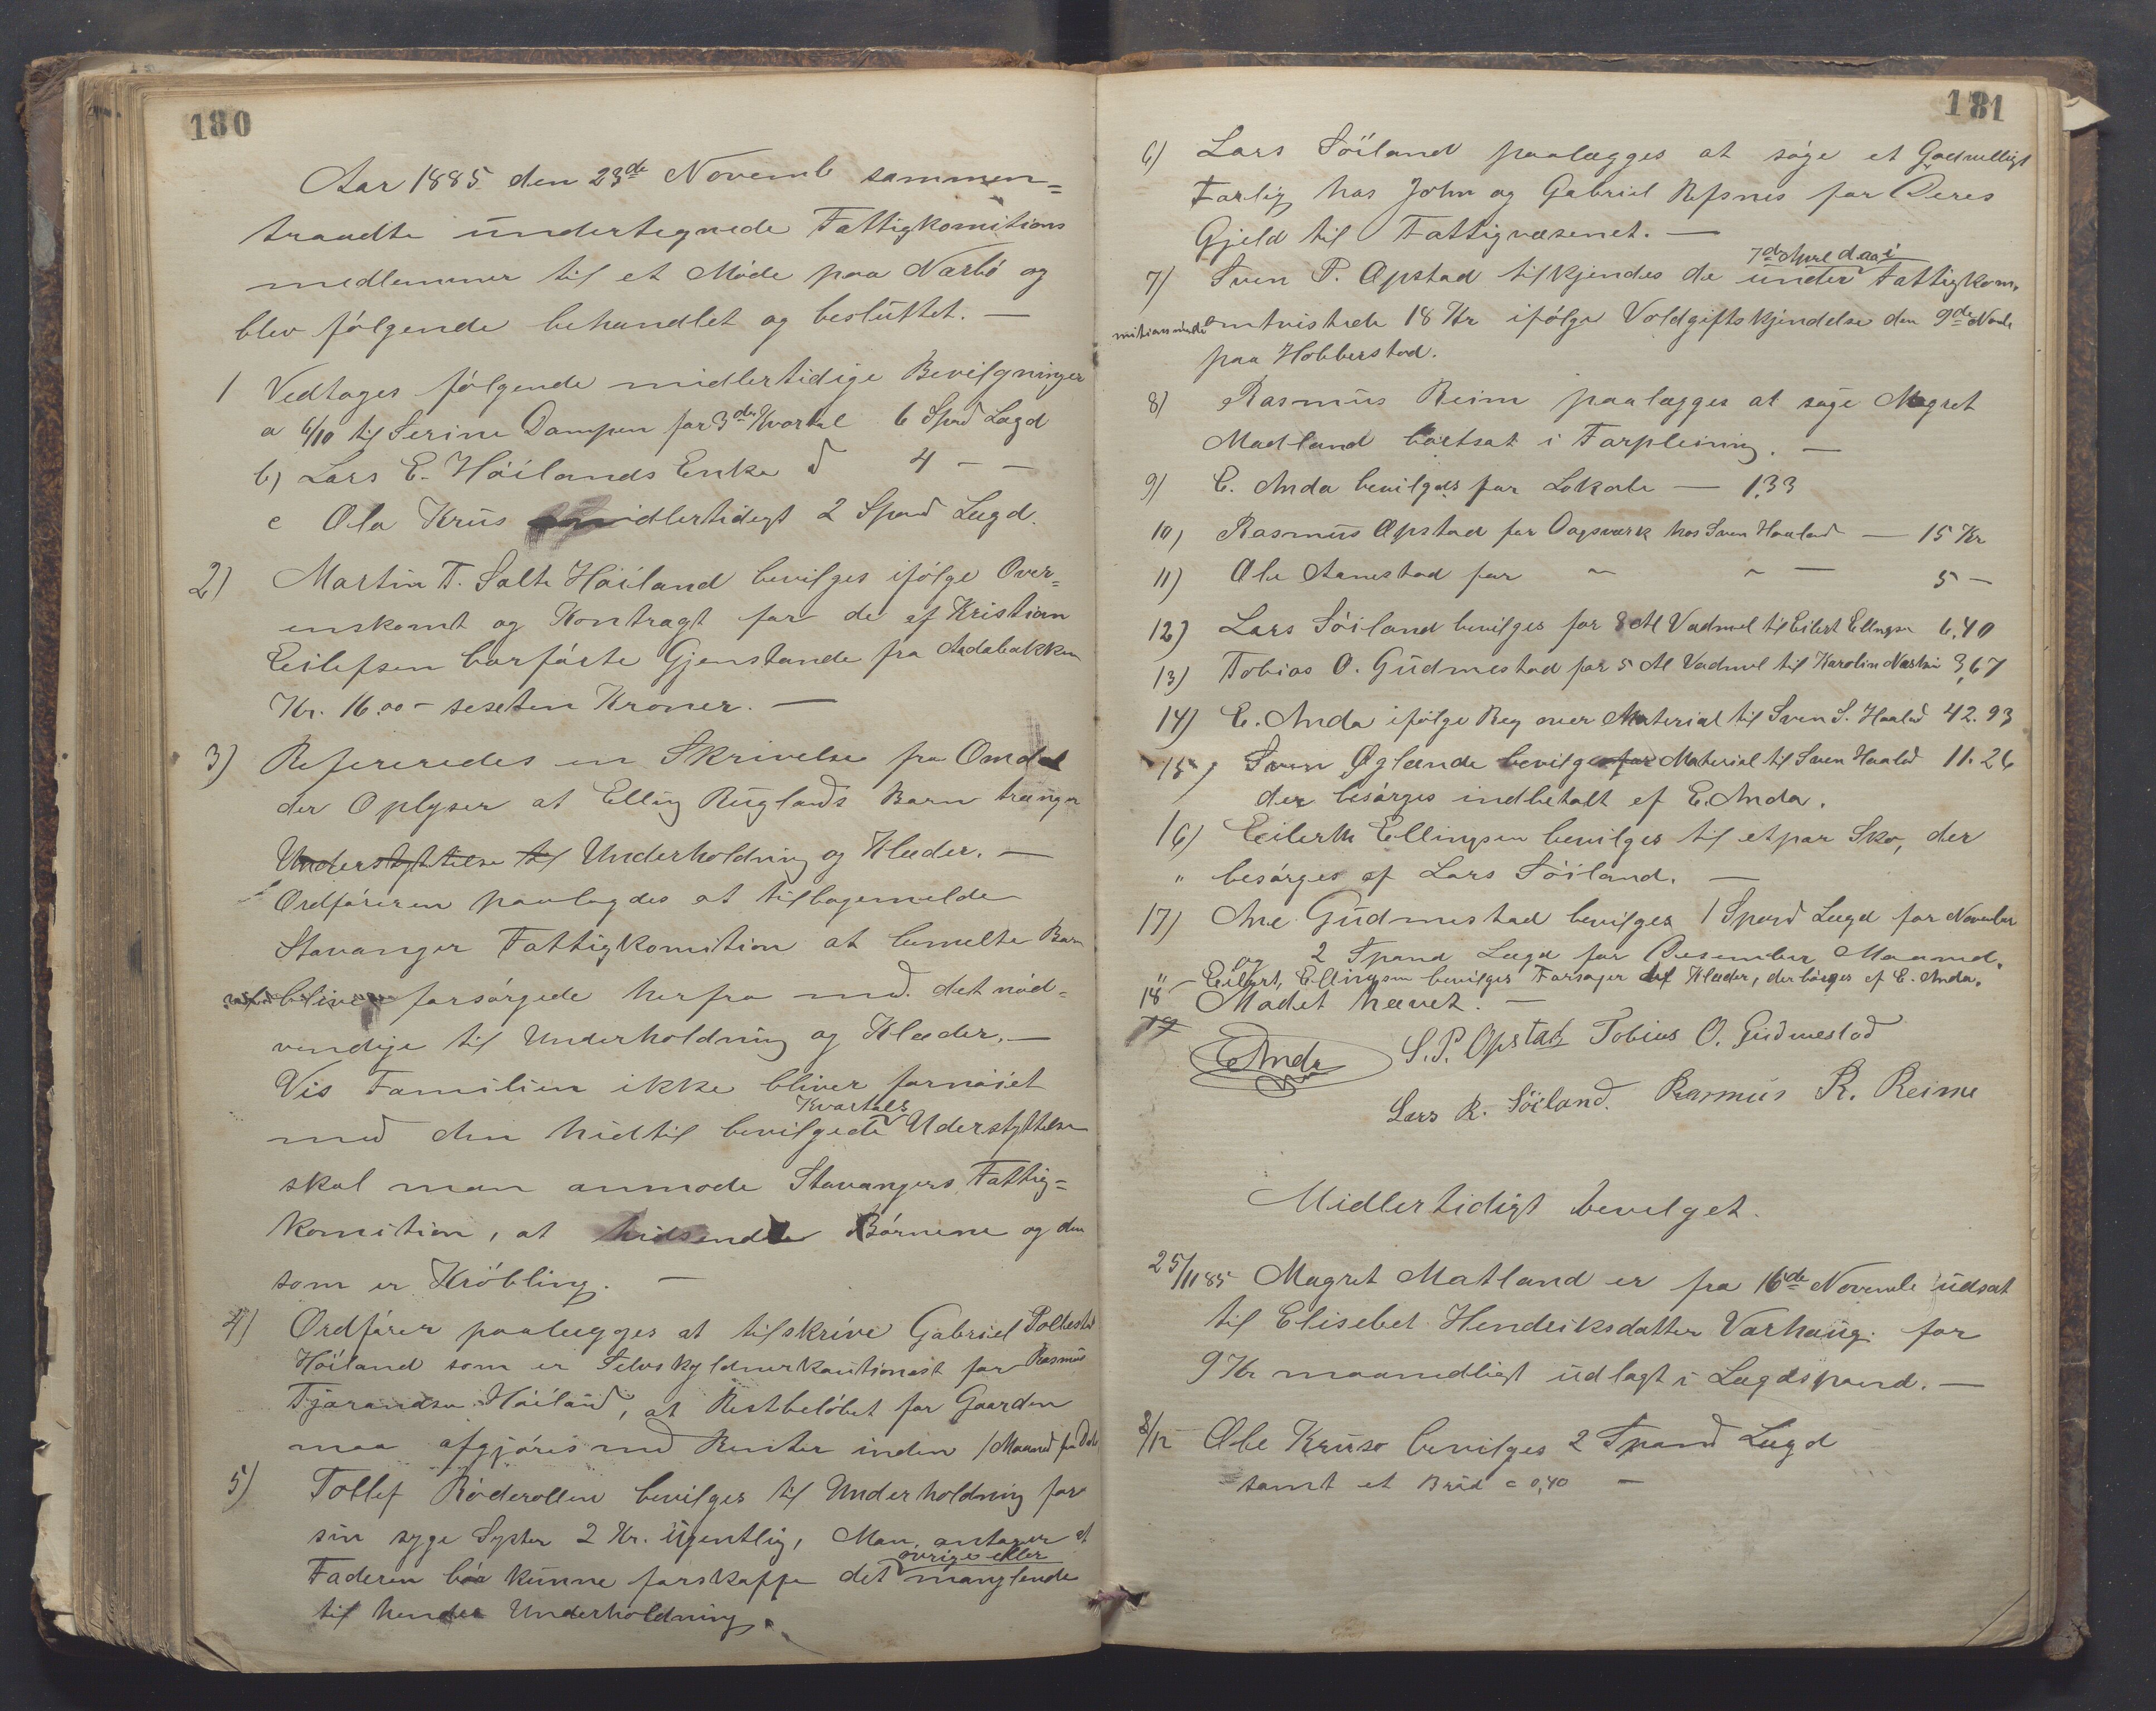 180
Aar 1885 den 23de Novemb sammen=
traadte undertegnede Fattigkomitions
medlemmer til et Møde paa Nærbø og
blev følgende behandlet og besluttet. —
1 Vedtages følgende midlertidige Bevilgninger
a 6/10 til Serine Dampen for 3de Kvartal 6 Spad Lægd
b) Lars E. Høilands Enke d 4 – –
c Ola Krus midlertidigt 2 Spand Lægd.
2) Martin T. Salte Høiland bevilges ifølge Over=
enskomt og Kontragt for de af Kristian
Eilefsen borførte Gjenstande fra Aadabakken
Kr. 16.00 – seseten Kroner. —
3) Refereredes en Skrivelse fra Omdal
der Oplyser at Elling Ruglands Barn trænger
Understyttelse til Underholdning og Klæder. —
Ordføreren paalagdes at tilbagemelde
Stavanger Fattigkomition at bemelte Barn
bliver forsørgede herfra med det nød=
vendige til Underholdning og Klæder. —
Vis Familien ikke bliver fornøiet
Kvartals
med den hidtil bevilgede Understyttelse
skal man anmode Stavangers Fattig=
komition, at hidsende Børnene og den
som er Krøbling. —
4) Ordfører paalægges at tilskrive Gabriel Polhestad
Høiland som er Selvskyldnerkautionest for Rasmus
Tjørandsen Høiland, at Restbeløbet for Gaarden
maa afgjøres med Renter inden 1 Maaned fra Dato
5) Tollef Røderollen bevilges til Underholdning for
sin syge Syster 2 Kr. ugentlig, Man antager at
øvrige eller
Faderen bør kunne forskaffe det manglende
til hendes Underholdning.
181
6) Lars Søiland paalægges at søge et Godvilligt
Forlig hos John og Gabriel Refsnes for Deres
Gjeld til Fattigvæsenet. —
7de April d. aa. i
7) Sven P. Opstad tilkjendes de under Fattigkom-
mitionsmøde omtvistede 18 Kr ifølge Voldgiftskjendelse den 9de Novb
paa Hobberstad.
8) Rasmus Reim paalægges at søge Magret
Madland bortsat i Forpleining. —
9) E. Anda bevilges for Lokale — 1,33
10) Rasmus Opstad for Dagsværk hos Sven Haaland — 15 Kr
11) Ole Aanestad for ~ ~ — 5 –
12) Lars Søiland bevilges for 8 Al Vadmel til Eilert Ellingsen 6,40
13) Tobias O. Gudmestad for 5 Al Vadmel til Karolin Nærbø 3,67
14) E. Anda ifølge Reg over Material til Sven S. Haaland 42.93
15) Sven Øglænde bevilges for Material til Sven Haaland 11.26
der besørges indbetalt af E. Anda.
16) Eilerth Ellingsen bevilges til etpar Sko, der
" besørges af Lars Søiland. —
17) Ane Gudmestad bevilges 1 Spand Lægd for November
og 2 Spand Lægd for Desember Maaned.
" – Eilert, Ellingsen bevilges Forsager til Klæder, der børges af E. Anda.
18 Mødet hævet. —
EAnda S. P. Opstad Tobias O. Gudmestad
Lars R. Søiland. Rasmus R. Reime
Midlertidigt bevelget.
25/11 85 Magret Matland er fra 16de Novemb udsat
til Elisebet Hendriksdatter Varhaug for
9 Kr maanedligt udlagt i Lægdspand. —
8/12 Ole Kruse bevilges 2 Spand Lægd
samt et Brød a 0,40 —